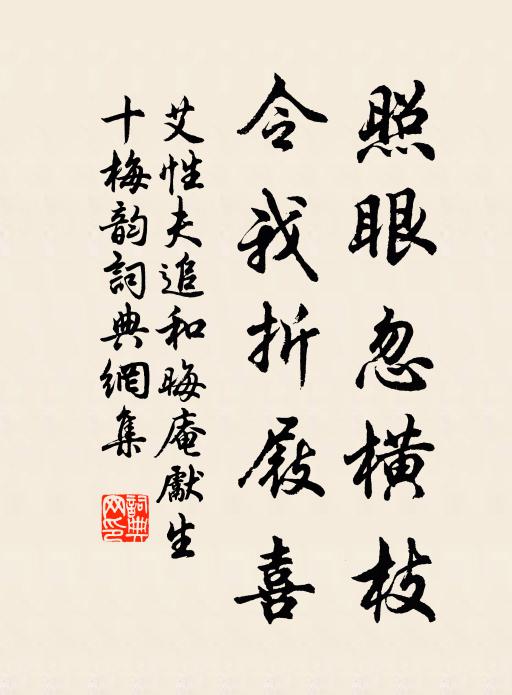 照眼忽橫枝
令我折屐喜
艾性夫追和晦庵獻生
十梅韵詞典網集
詞典網印